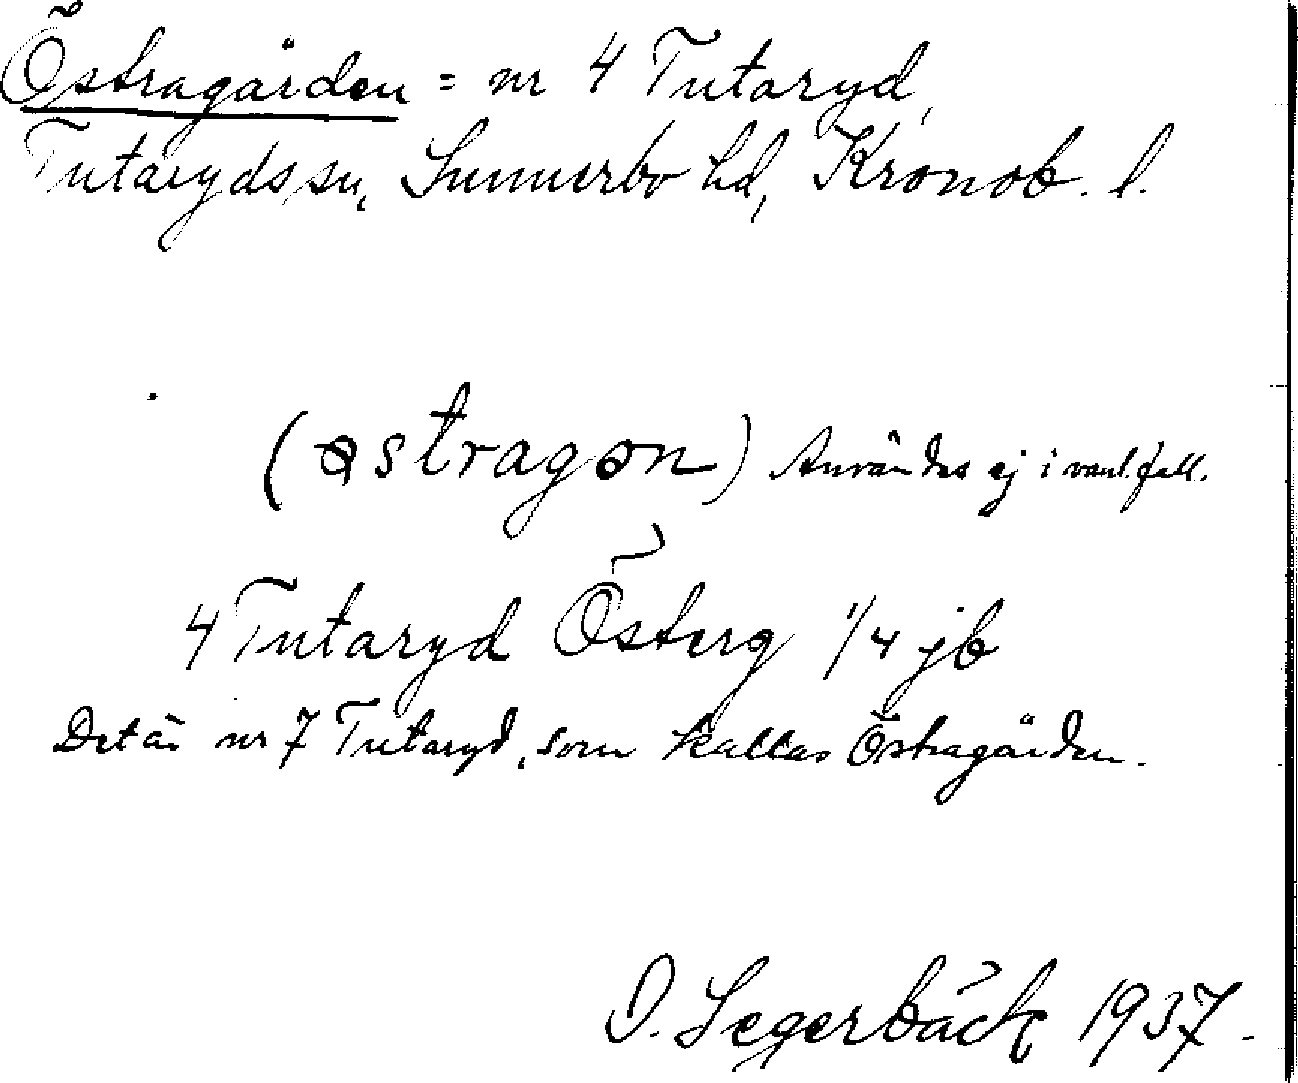 Östragården = nr 4 Tutaryd,
Tutaryds sn, Sunnerbo hd, Kronob. l.
(østragøn) Användes ej i vanl. fall.
4 Tutaryd Österg 1/4 jb
Det är nr 7 Tutaryd, som kallas Östragården.
O. Segerbäck 1937.